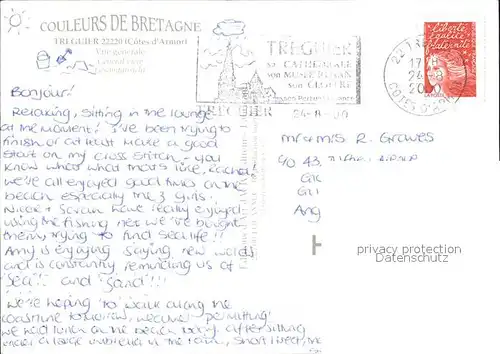 COULEURS DE BRETAGNE
TREGUIER 22220 (Côtes d'Armor)
Vue générale
TREGUIER
sa CATHEDRALE
son MUSEE RENAN
son CLOITRE
TREGUIER
22 TREGUIER
17 H
24-8
2000
COTES D'ARMOR
24-8-00
Liberté
Egalité
Fraternité
Bonjour!
Relaxing, sitting in the lounge
at the moment! I've been trying to
finish or at least make a good
start on my cross stitch - you
know what that's like, Rachel!
we've all enjoyed good times on the
beach especially the 3 girls.
have really enjoyed
using the fishing net we've bought
them, trying to find sealife!!
Amy is enjoying saying new words
and is constantly reminding us of
'sea'! and 'sand'!!!
We're hoping to walk along the
coastline tomorrow, weather permitting!
we had lunch on the beach today, after sitting
under a large umbrella in the rain, short lived, tho
Mr & Mrs R. Graves
c/o 43,
Gle
Gu
Ang
privacy protection
Datenschutz